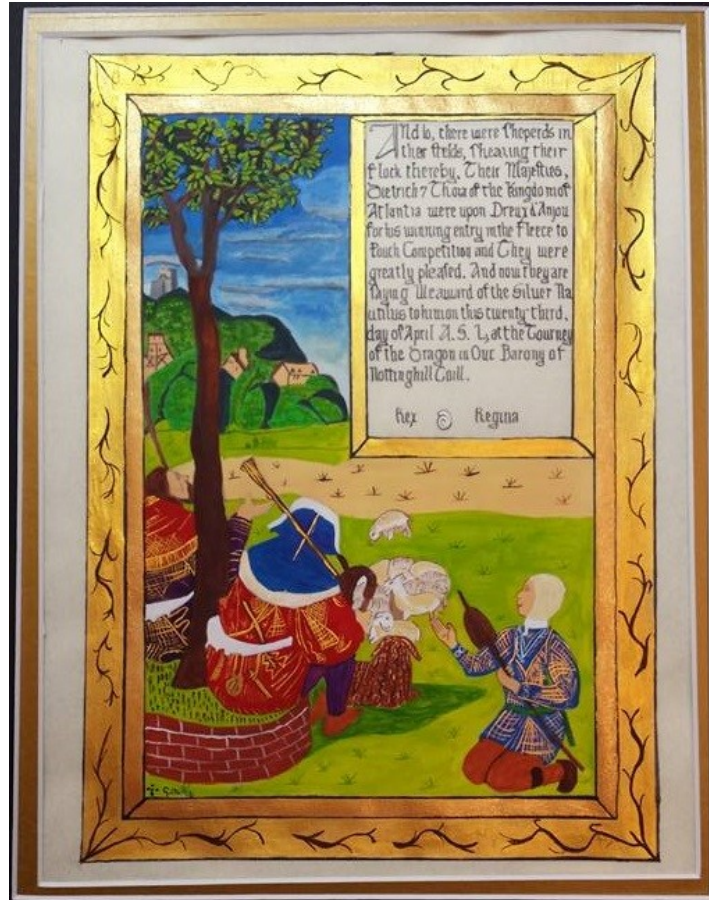 And lo, there were ſheperds in
ther fields, ſhearing their
flock thereby. Their Majeſties,
Dietrich ⁊ of the Kingdom of
Atlantia were upon Dreux d'Anjou
for his winning entry in the Fleece to
Pouch Competition and They were
greatly pleaſed. And now they are
award of the Silver Na
utilus to him on this twenty-third,
day of April A. S. L, at the Tourney
of the Dragon in Our Barony of
Nottinghill Coill.
Rex Regina